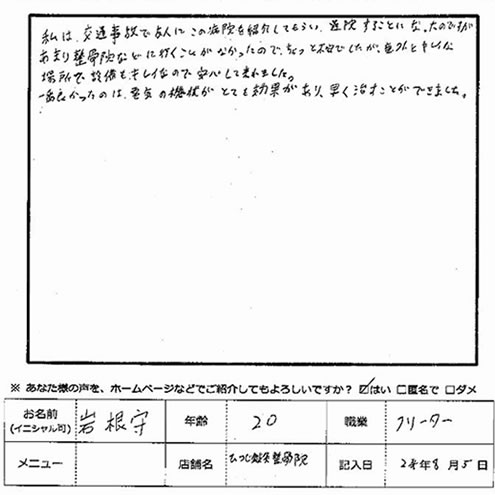 私は、交通事故で友人にこの病院を紹介してもらい、通院することになったのですが
あまり整骨院などに行くことがなかったので、ちょっと不安でしたが、意外とキレイな
場所で設備もキレイなので安心して来れました。
一番良かったのは、電気の機械がとても効果があり、早く治すことができました。
※ あなた様の声を、ホームページなどでご紹介してもよろしいですか? ☑はい □匿名で □ダメ
お名前 岩根守 年齢 20 職業 フリーター
(イニシャル可)
メニュー 店舗名 整骨院 記入日 28年8月5日